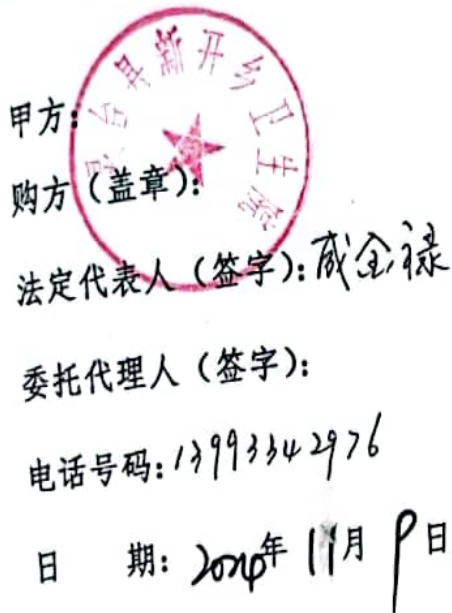 灵台县新开乡卫生院
甲方:
购方（盖章）:
法定代表人（签字）: 金禄
委托代理人（签字）:
电话号码: 13993342976
日 期: 2024年 11月 9日